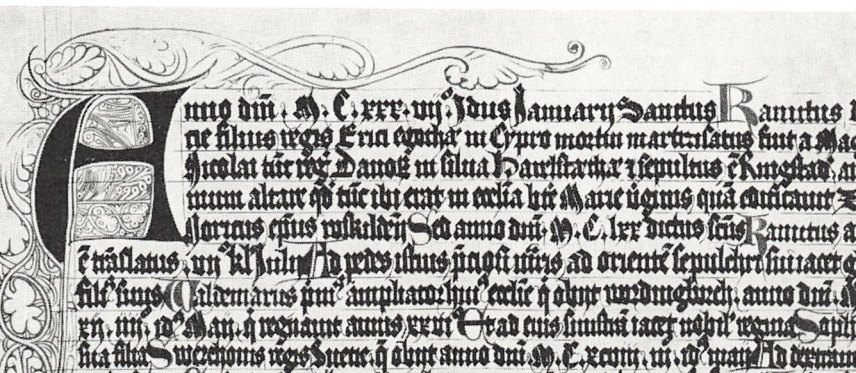 Anno dm̄. M. C. xxx. vijº Jdus Januarij Sanctus Kanutus
cie filius regis Erici egothæ in Cypro mortui martirisatus fuit a Mag
Nicolai tūc reg Danoꝝ in silua Harelstathæ ⁊ sepultus ē Ringstad
mum altare qd̄ tūc ibi erat in ecclīa btē Marie uiginis quā edificauit
ep̄us roskilden̄ Sed anno dm̄. M. C. lxx dictus sc̄us Kanutus a
ē trāslatus. vijº kl' Julij Ad pedes istius p̄ciosi m̄ris ad orientē sepulchri sui iacet
filiꝰ suus Waldemarus pmꝰ ampliator huiꝰ ecclie q̄ obijt wordingborch. anno dm̄. M
xij. iiij. idꝰ Maij. q̄ regnauit annis xxvi Et ad eius sinistrā iacet nobilꝰ regina Soph
filia Swerchonis regis Suecie. q̄ obijt anno dm̄. M. C. xcviij. iij. idꝰ maij Ad dextram